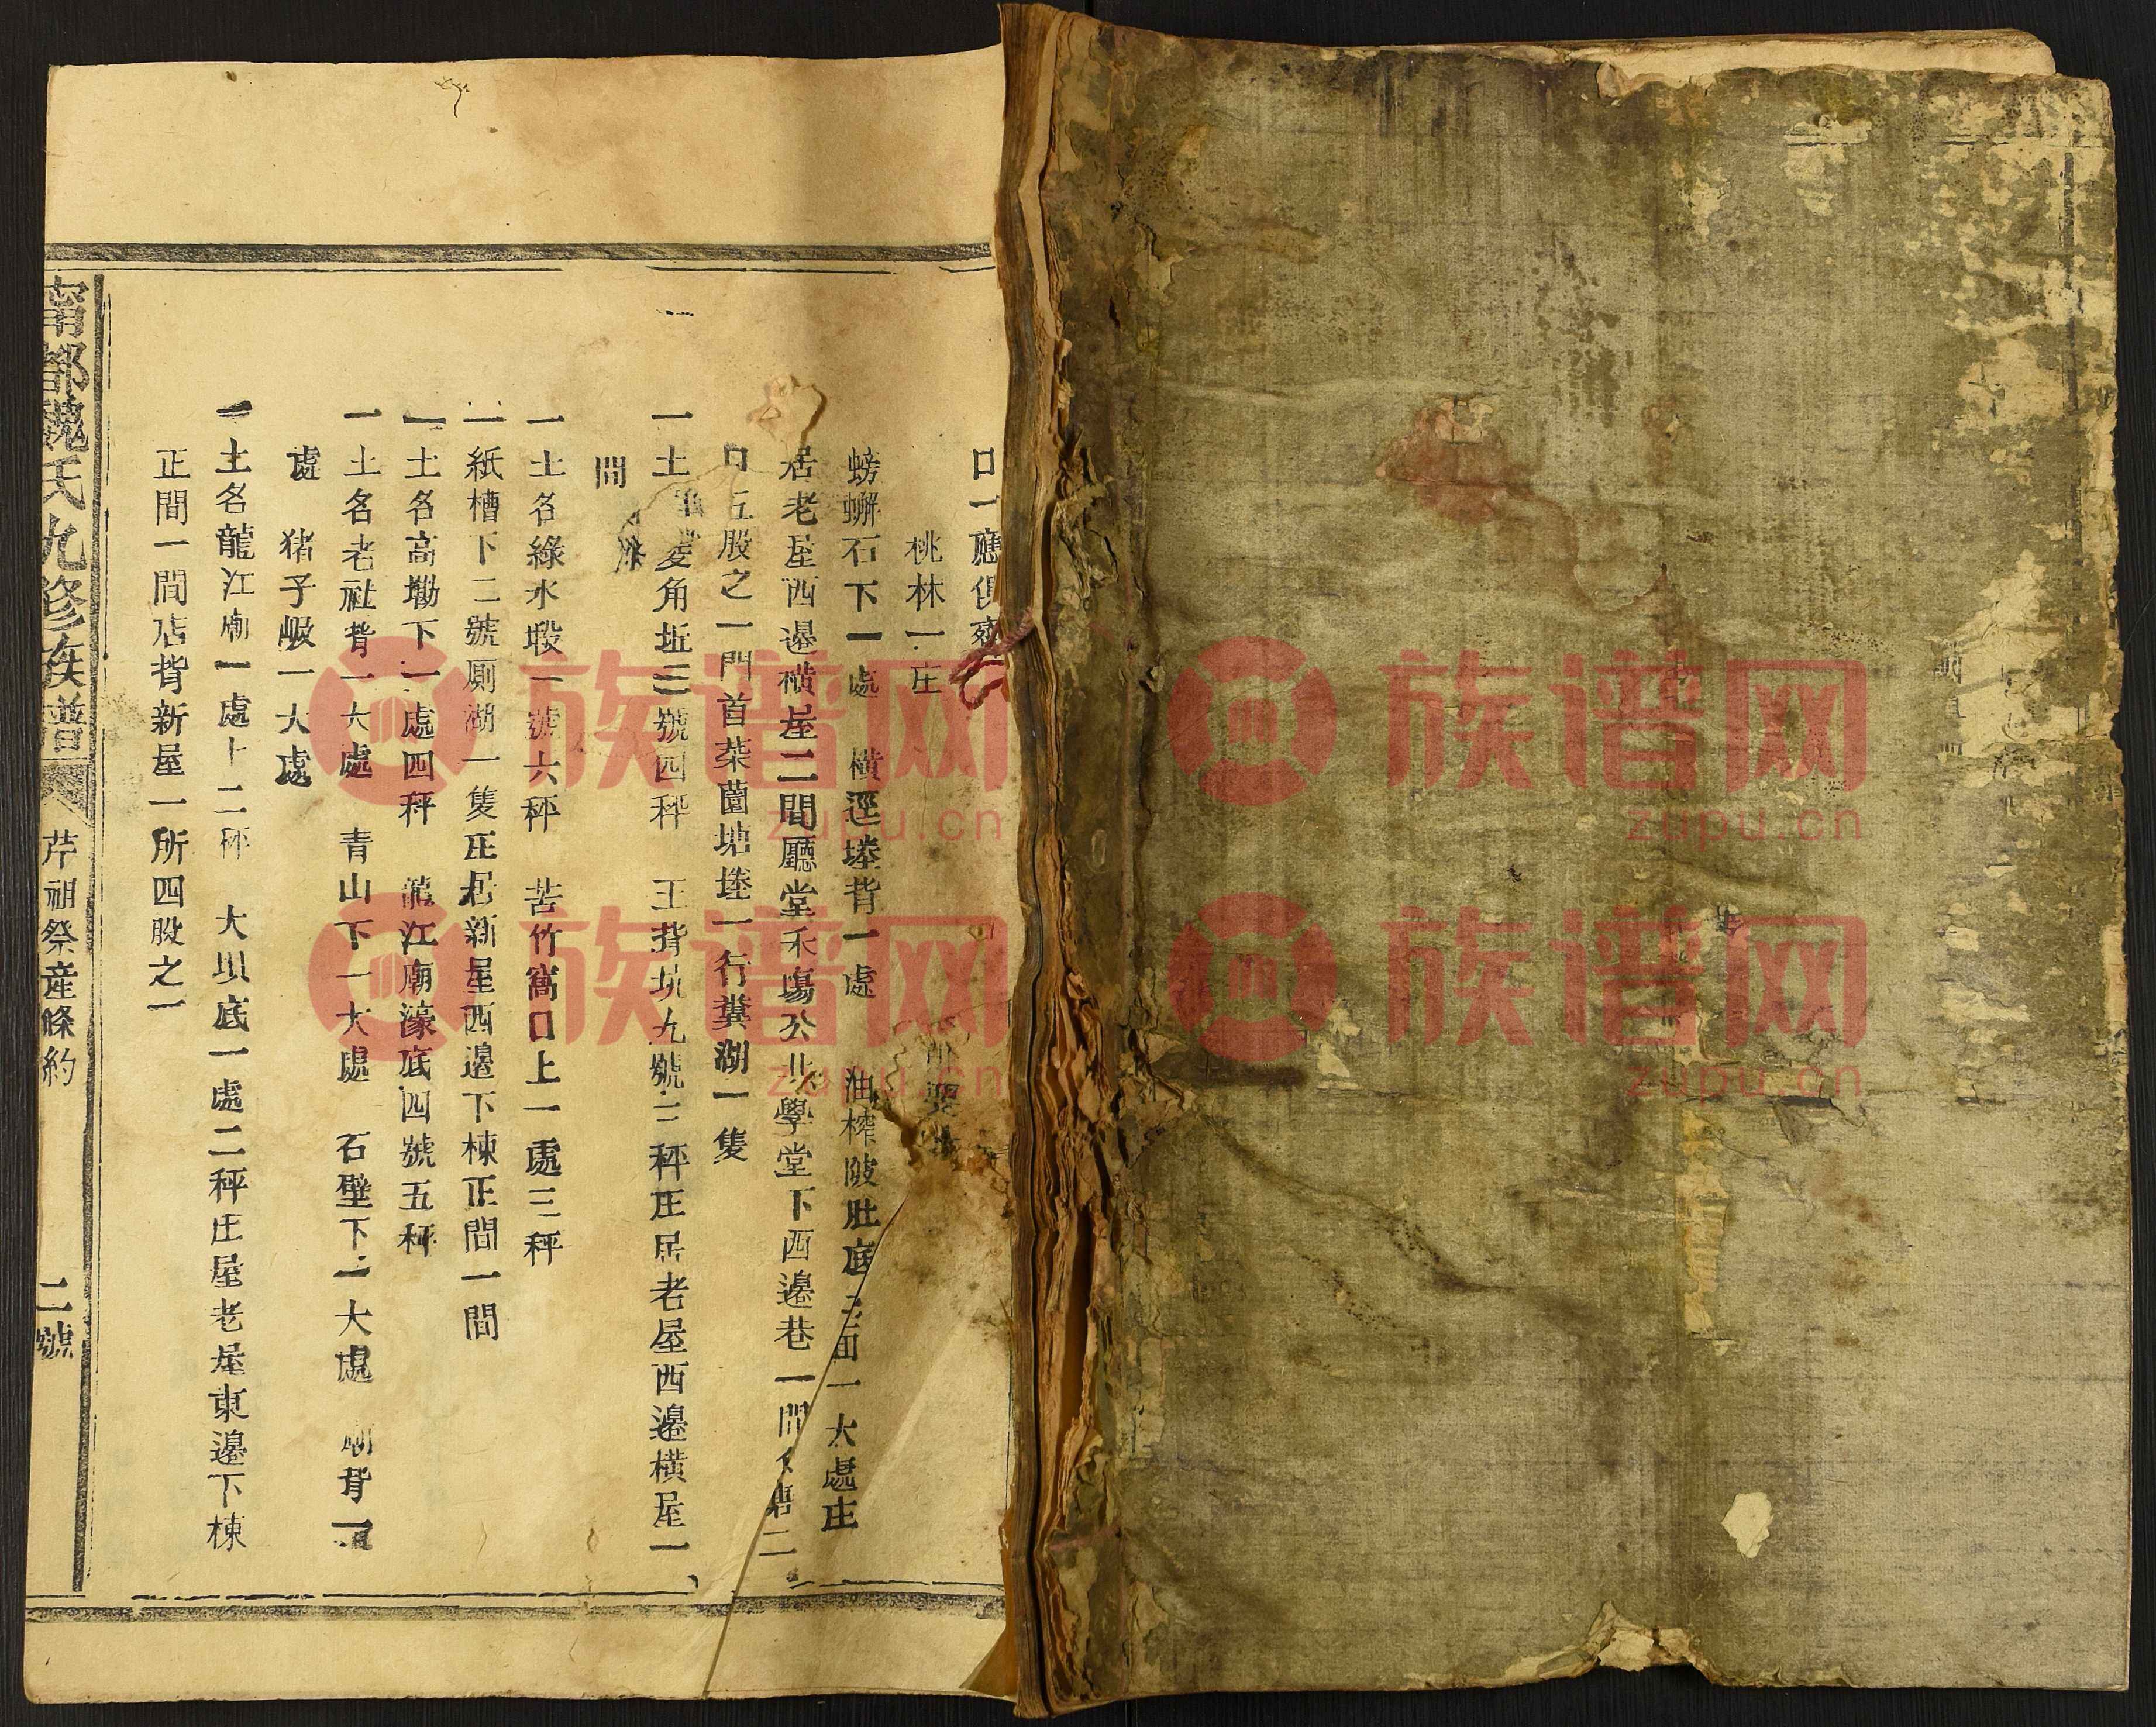 口一應俱齊
桃林一庄
螃蠏石下一處 橫逕塘背一處 油榨陂肚底 一大處庄
居老屋西邊橫屋二間廳堂禾塲公共學堂下西邊巷一間 二
口五股之一門首菜薗塘塍一行糞湖一隻
一土 菱角坵三號四秤 王背坑九號三秤庄居老屋西邊橫屋一
間
一土名綠水塅一號六秤 苦竹窩口上一處三秤
一紙槽下二號厠湖一隻庄居新屋西邊下棟正間一間
一土名高塅下一處四秤 龍江廟濠底四號五秤
一土名老社背一大處 青山下一大處 石壁下一大處 廟背一
處 猪子㘭一大處
一土名龍江廟一處十二秤 大垻底一處二秤庄屋老屋東邊下棟
正間一間店背新屋一所四股之一
甯都魏氏九修族譜 芹祖祭産條約 二號
族谱网
zupu.cn
族谱网
zupu.cn
族谱网
zupu.cn
族谱网
zupu.cn